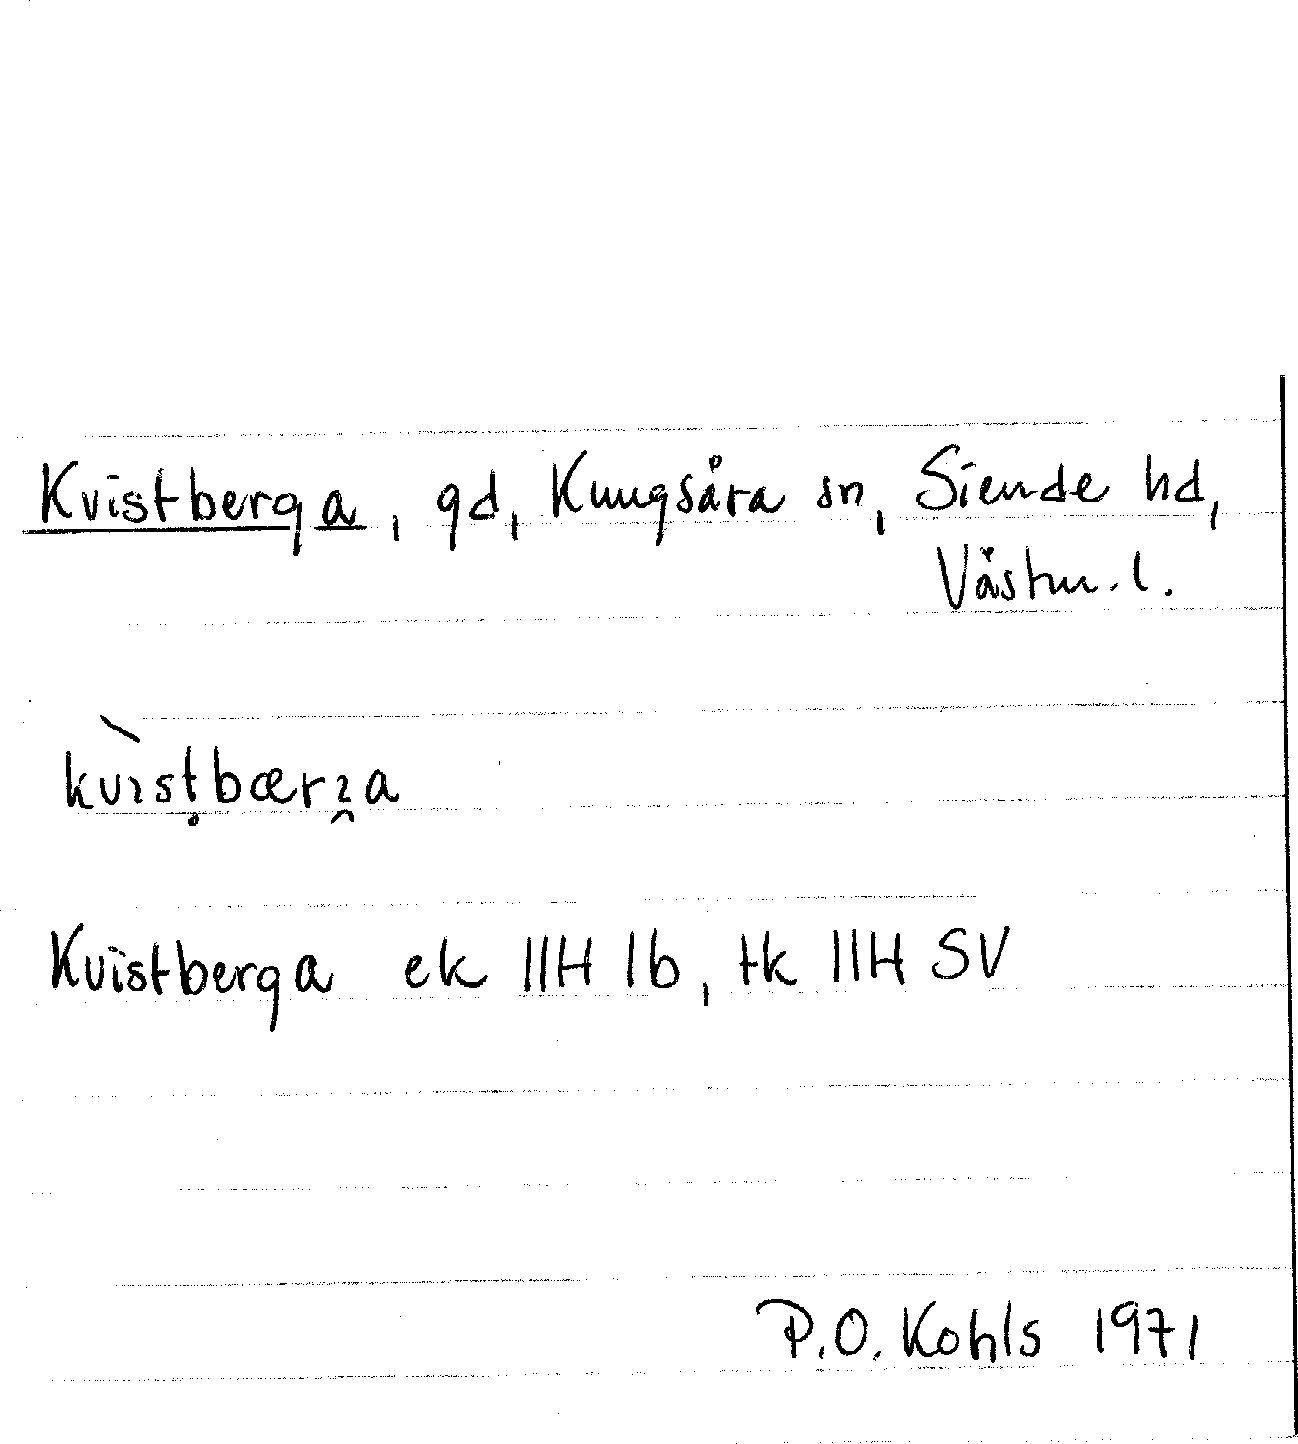 Kvistberga, gd, Kungsåra sn, Siende hd,
Västm. l.
Kvistberga ek 11H 1b, tk 11H SV
P.O. Kohls 1971